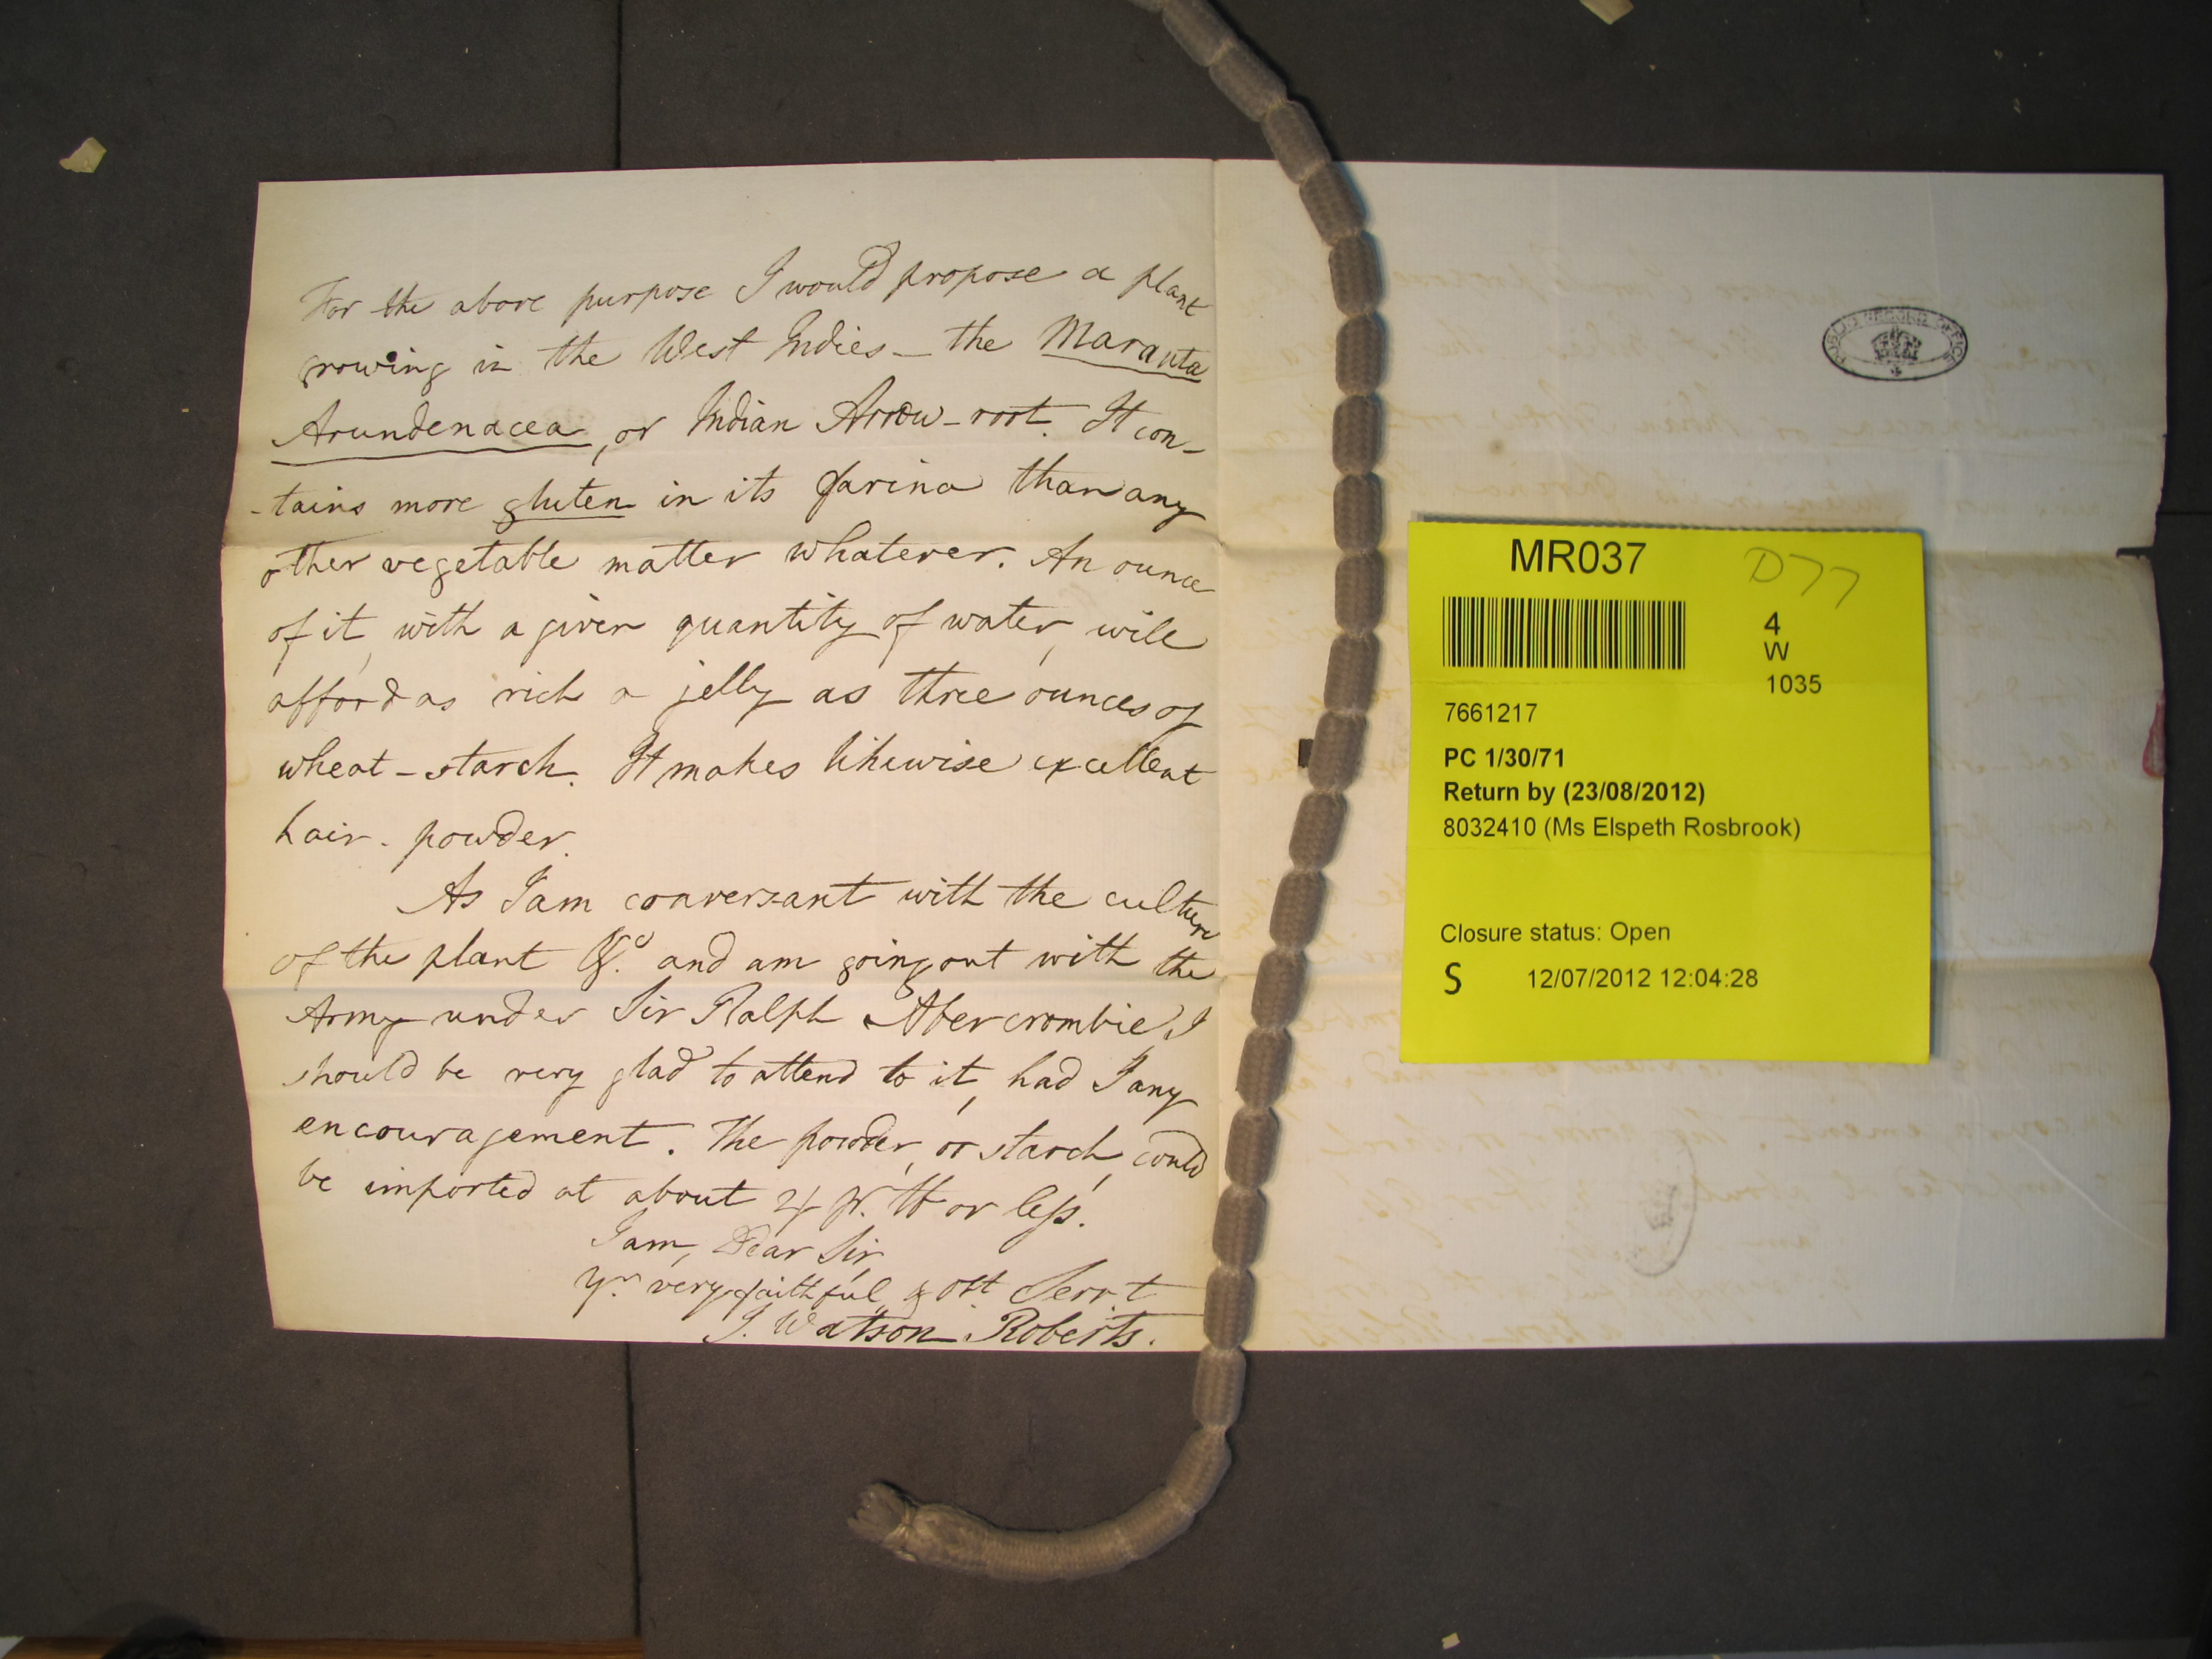 For the above purpose I would propose a plant
growing in the West Indies – the Maranta
Arundenacea, or Indian Arrow-root. It con-
-tains more gluten in its farina than any
other vegetable matter whatever. An ounce
of it, with a given quantity of water, will
afford as rich a jelly as three ounces of
wheat-starch. It makes likewise excellent
hair-powder.
As I am conversant with the culture
of the plant &c. and am going out with the
Army under Sir Ralph Abercrombie, I
should be very glad to attend to it, had I any
encouragement. The powder, or starch, could
be imported at about pr. lb or less.
I am, Dear Sir,
Yr. very faithful & obt Servt
J. Watson Roberts.
PUBLIC RECORD OFFICE
MR037
D77
4
W
1035
7661217
PC 1/30/71
Return by (23/08/2012)
8032410 (Ms Elspeth Rosbrook)
Closure status: Open
S 12/07/2012 12:04:28